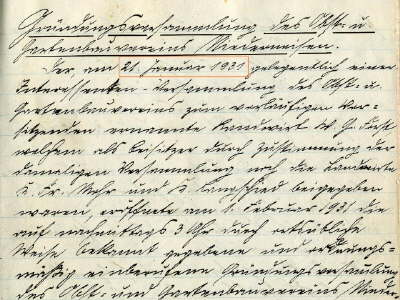 Gründungsversammlung des Obst- u.
Gartenbauvereins Niedermeisen.
Der, am 21. Januar 1931 gelegentlich einer
Interessenten-Versammlung des Obst- u.
Gartenbauvereins zum vorläufigen Vor-
sitzenden ernannte Landwirt W. G.
welchem als Beisitzer durch Zustimmung der
damaligen Versammlung noch die Landwirte
u. Fr. Mohr und K. Langschied beigegeben
waren, eröffnete am 1. Februar 1931, die
auf nachmittags 3 Uhr durch ortsübliche
Weise bekannt gegebene und ordnungs-
mäßig einberufene Gründungsversammlung
des Obst- und Gartenbauvereins Nieder-